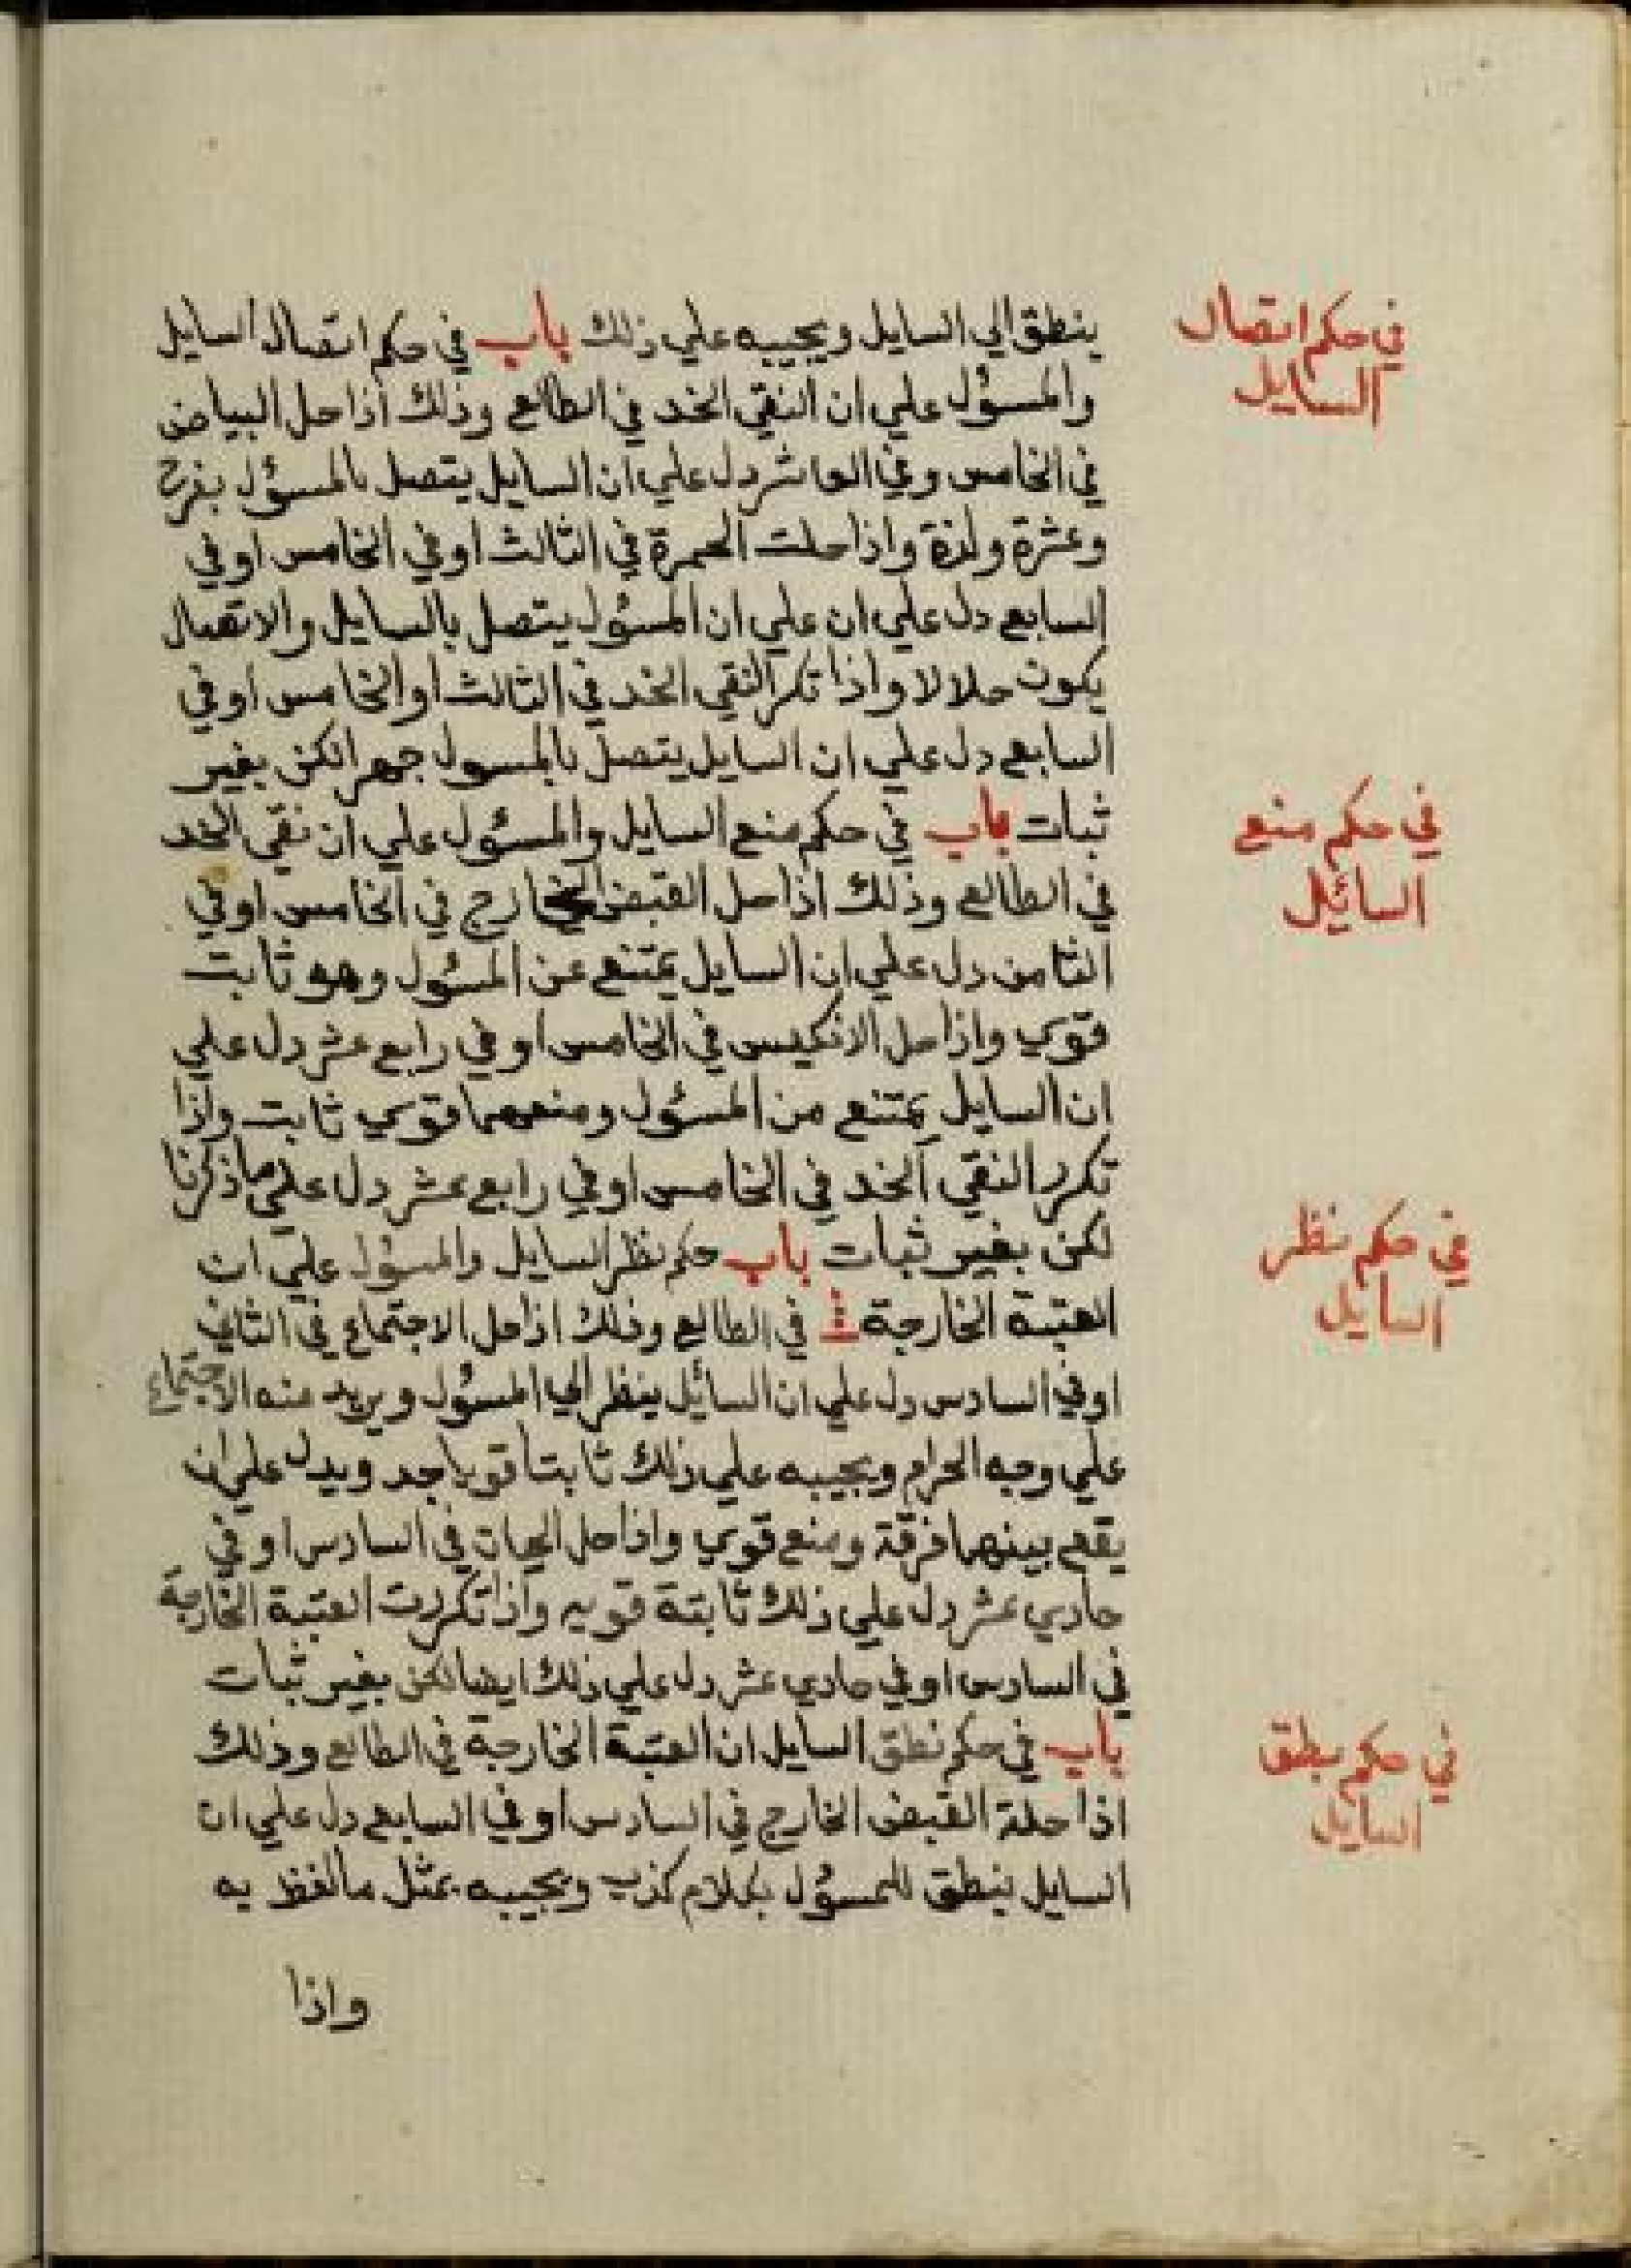 ينطق الي السايل ويجيبه علي ذلك باب في حكم اتصال السايل
في حكم اتصال
السايل
والمسؤل علي ان النقي الخد في الطالع وذلك اذا حل البياض
في الخامس وفي العاشر دل علي ان السايل يتصل بالمسؤل بفرح
وعشرة ولذة واذا حلت الحمرة في الثالث او في الخامس او في
السابع دل علي ان علي ان المسؤل يتصل بالسايل والاتصال
يكون حلالا واذا تكر النقي الخد في الثالث او الخامس او في
السابع دل علي ان السايل يتصل بالمسول جهرا لكن بغير
ثبات باب في حكم منع السايل والمسئول علي ان نقي الخد
في حكم منع
السائل
في الطالع وذلك اذا حل القبض الخارج في الخامس او في
الثامن دل علي ان السايل يمتنع عن المسئول وهو ثابت
قوي واذا حل الانكيس في الخامس او في رابع عشر دل علي
ان السايل يمتنع من المسئول ومنعهما قوي ثابت واذا
تكرر النقي الخد في الخامس او في رابع عشر دل علي ما ذكرنا
لكن بغير ثبات باب حكم نظر السايل والمسؤل علي ان
في حكم نظر
السايل
العتبة الخارجة في الطالع وذلك اذا حل الاجتماع في الثاني
او في السادس دل علي ان السائل ينظر الي المسؤل ويريد منه الاجتماع
علي وجه الحرام ويجيبه علي ذلك ثابتا قويا جد ويدل علي ان
يقع بينهما فرقة ومنع قوي واذا حل اليحان في السادس او في
حادي عشر دل علي ذلك ثابتة قويه واذا تكررت العتبة الخارجة
في السادس او في حادي عشر دل علي ذلك ايضا لكن بغير ثبات
باب في حكم نطق السايل ان العتبة الخارجة في الطالع وذلك
في حكم نطق
السايل
اذا حلة القبض الخارج في السادس او في السابع دل علي ان
السايل ينطق للمسؤل بكلام كذب ويجيبه بمثل ما لفظ به
واذا